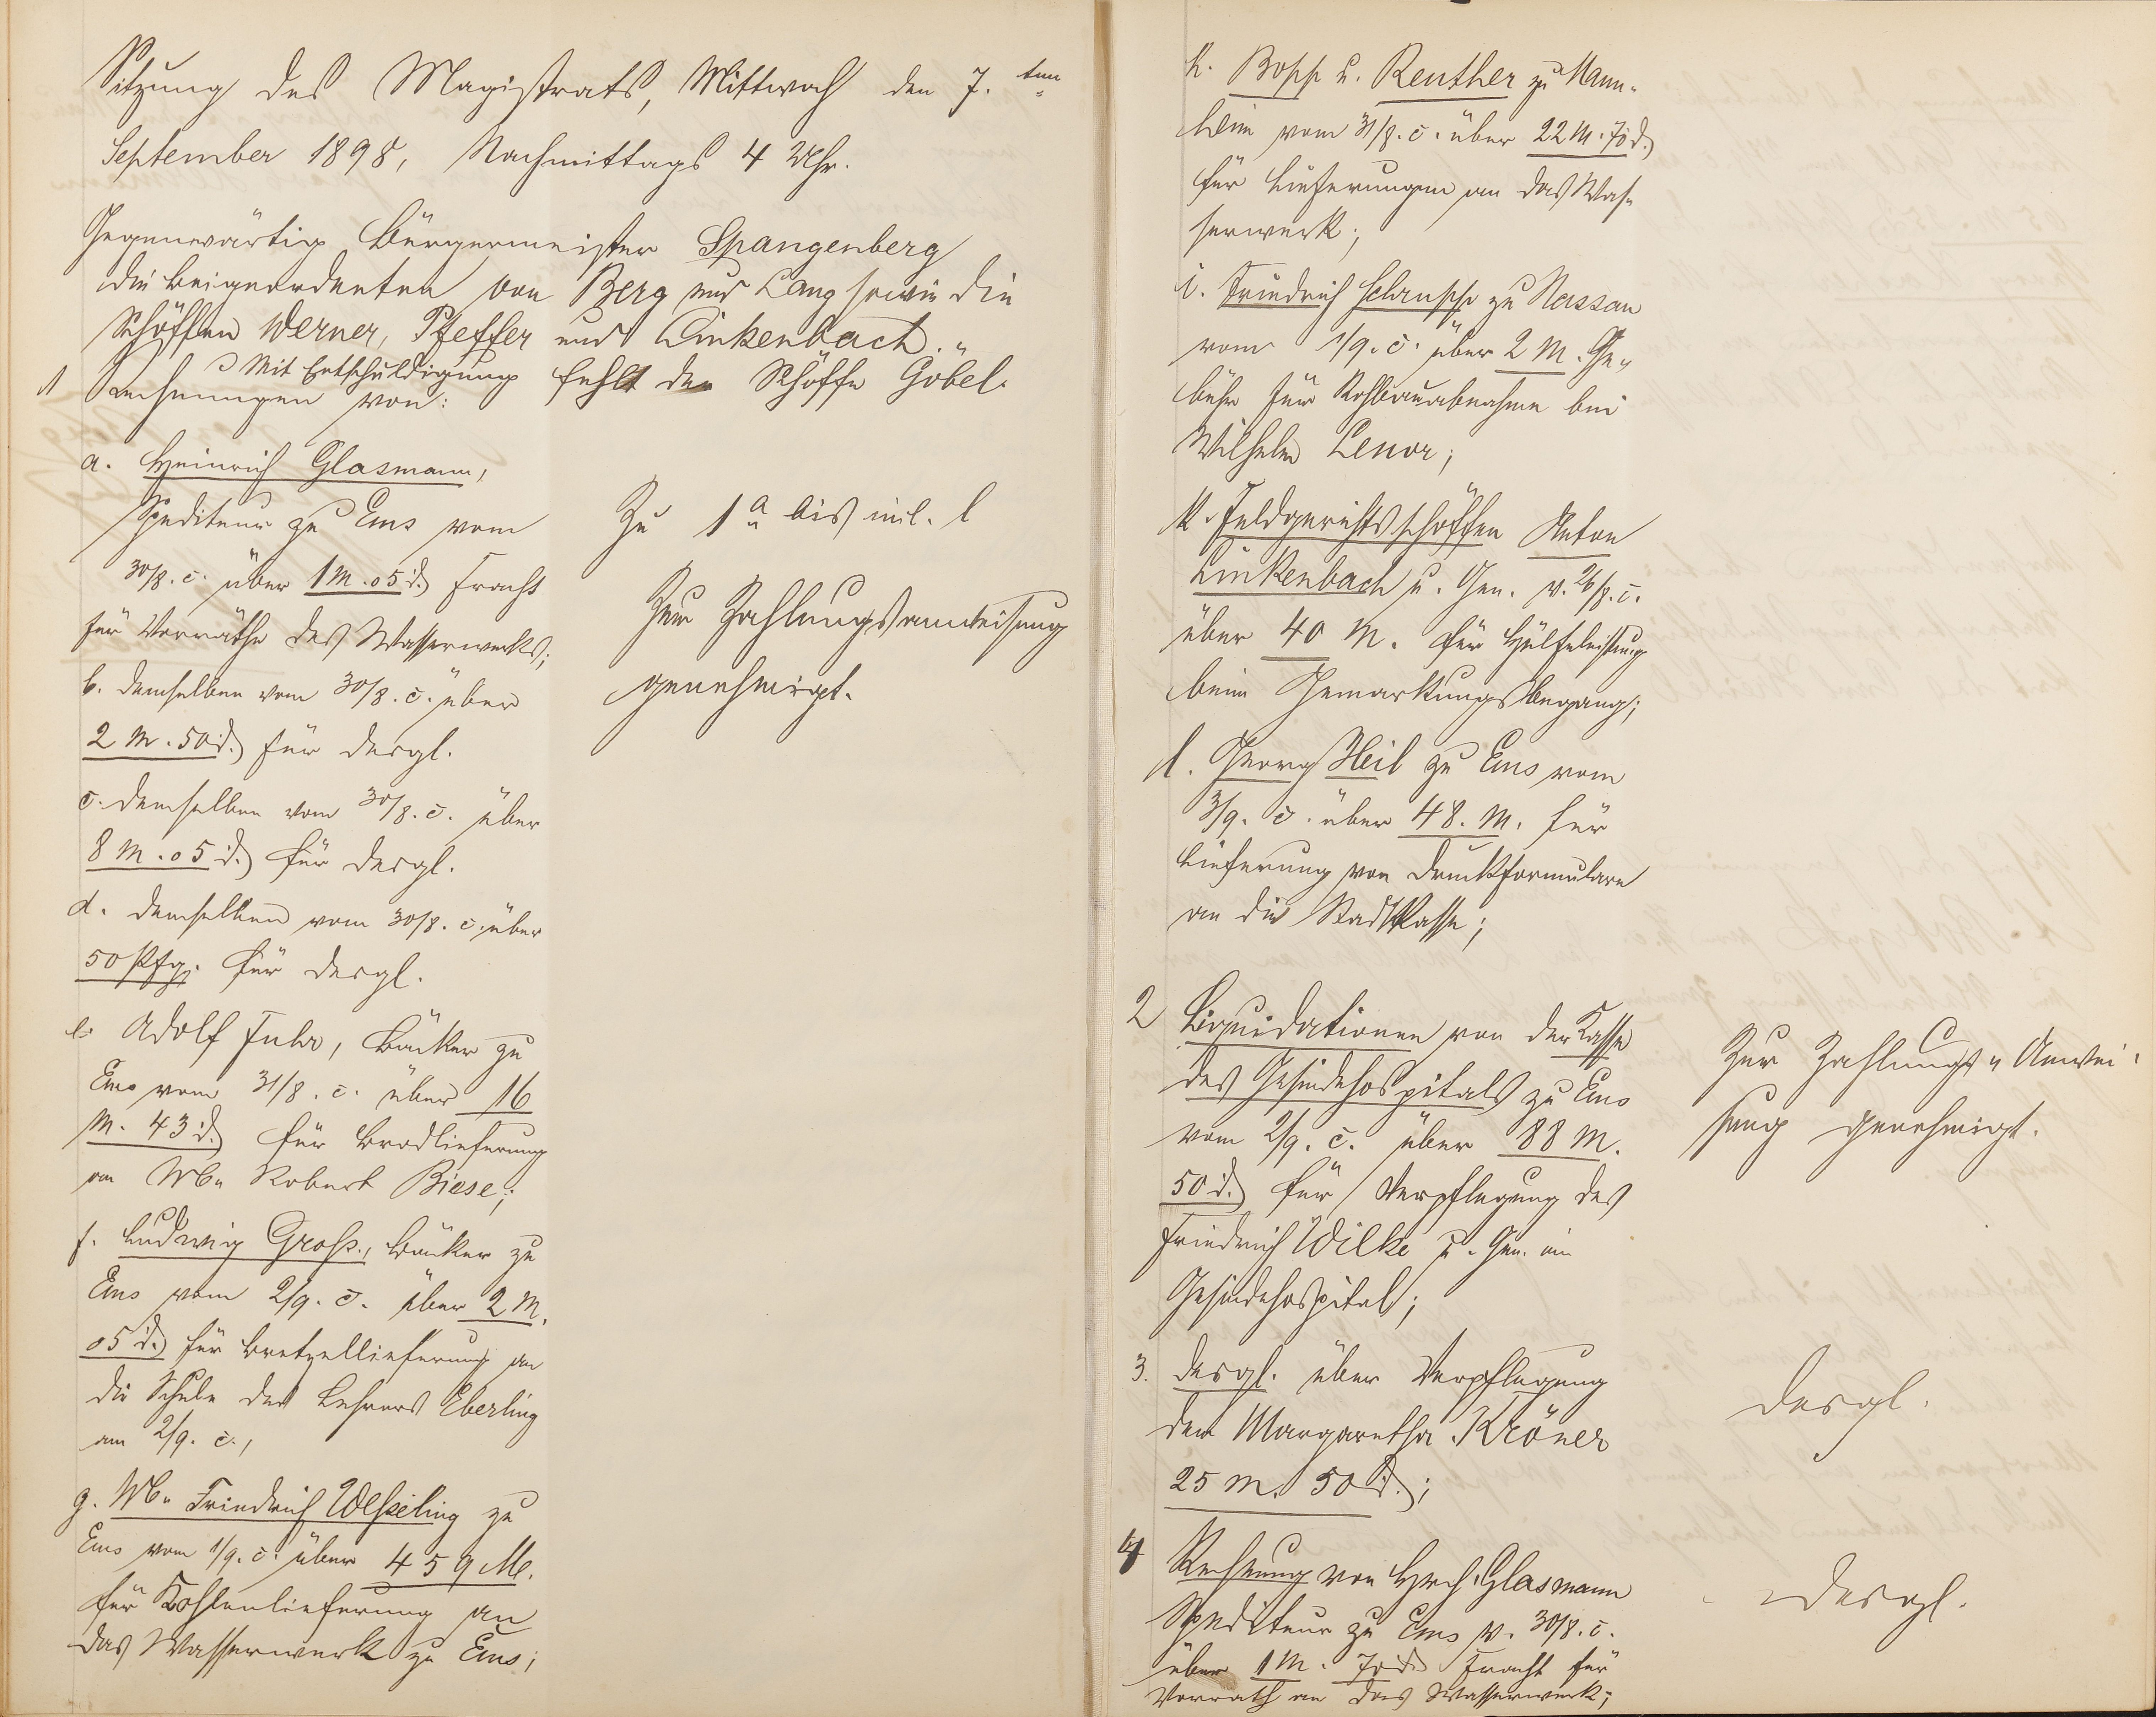 Sitzung des Magistrats, Mittwoch den 7. ten
September 1898, Nachmittags 4 Uhr.
Gegenwärtig Bürgermeister Spangenberg
die Beigeordneten von Berg und Lang sowie die
Schöffen Werner, Pfeffer und Linkenbach.
Mit Entschuldigung fehlt der Schöffe Göbel.
1 Rechnungen von:
a. Heinrich Glasmann,
Spediteur zu Ems vom
30/8. c. über 1 M. 05 d. Fracht
für Vorräthe des Wasserwerks;
b. demselben vom 30/8. c. über
2 M. 50 d. für desgl.
c. demselben vom 30/8. c. über
8 M. 05 d. für desgl.
d. demselben vom 30/8. c. über
50 Pfg. für desgl.
e. Adolf Fuhr, Bäcker zu
Ems vom 31/8. c. über 16
M. 43 d. für Brodlieferung
an Wb. Robert Biese;
f. Ludwig Groß, Bäcker zu
Ems vom 2/9. c. über 2 M.
05 d. für Bretzellieferung an
die Schule des Lehrers Eberling
am 2/9. c.,
g. Wb. Friedrich Weßeling zu
Ems vom 1/9. c. über 459 M.
für Kohlenlieferung an
das Wasserwerk zu Ems;
Zu 1 a bis incl. l
Zur Zahlungsanweisung
genehmigt.
h. Bopp u. Reuther zu Mann-
heim vom 31/8. c. über 22 M. 70 d.
für Lieferungen an das Was-
serwerk;
i. Friedrich Schrupp zu Nassau
vom 1/9. c. über 2 M. Ge-
bühr für Rohbauabnahme bei
Wilhelm Lenor;
k. Feldgerichtsschöffen Anton
Linkenbach u. Gen. v. 26/8. c.
über 40 M. für Hülfeleistung
beim Gemarkungsbegang;
l. Georg Heil zu Ems vom
3/9. c. über 48. M. für
Lieferung von Druckformulare
an die Stadtkasse;
2 Liquidationen von der Kasse
des Gesindehospitals zu Ems
vom 2/9. c. über 88 M.
50 d. für Verpflegung des
Friedrich Wilke u. Gen. im
Gesindehospital;
Zur Zahlungs-Anwei-
sung genehmigt.
3. desgl. über Verpflegung
der Margaretha Kröner
25 M. 50 d.;
desgl.
4 Rechnung von Hrch. Glasmann
Spediteur zu Ems v. 30/8. c.
über 1 M. 70 d. Fracht für
Vorrath an das Wasserwerk;
desgl.